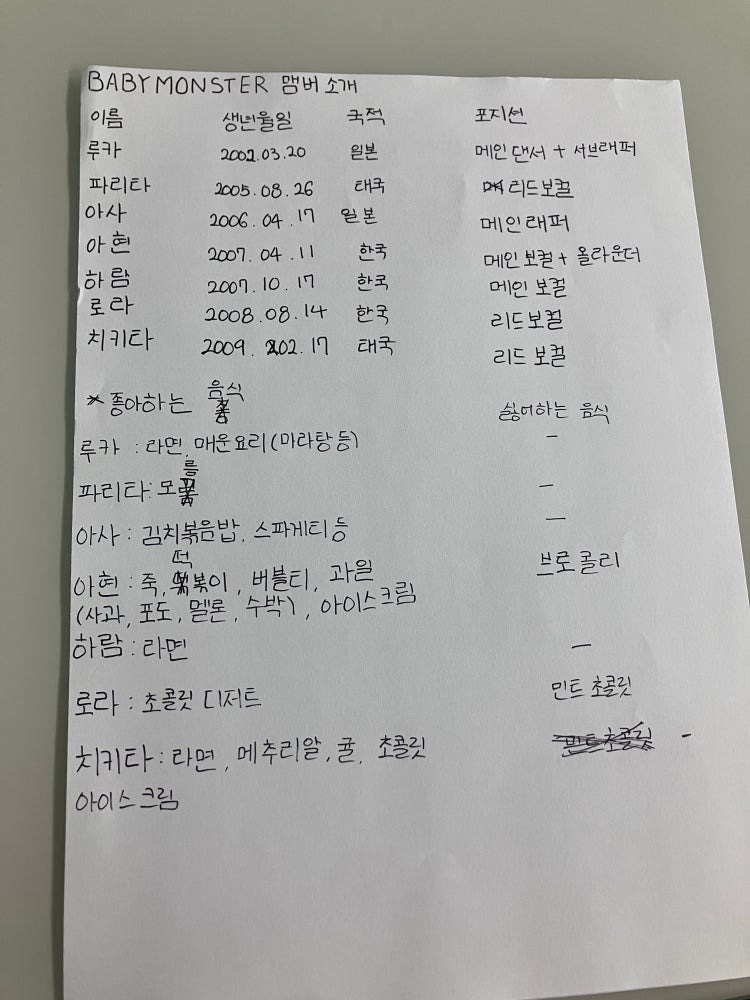 BABYMONSTER 맴버 소개
이름 생년월일 국적 포지션
루카 2002.03.20 일본 메인 댄서 + 서브래퍼
파리타 2005.08.26 태국 리드보컬
아사 2006.04.17 일본 메인래퍼
아현 2007.04.11 한국 메인 보컬 + 올라운더
하람 2007.10.17 한국 메인 보컬
로라 2008.08.14 한국 리드보컬
치키타 2009.02.17 태국 리드 보컬
*좋아하는 음식 싫어하는 음식
루카 : 라면, 매운요리(마라탕 등) -
파리타: 모름 -
아사 : 김치볶음밥, 스파게티 등 -
아현 : 죽, 떡볶이, 버블티, 과일 브로콜리
(사과, 포도, 멜론, 수박), 아이스크림
하람 : 라면 -
로라 : 초콜릿 디저트 민트 초콜릿
치키타 : 라면, 메추리알, 귤, 초콜릿 민트 초콜릿 -
아이스크림